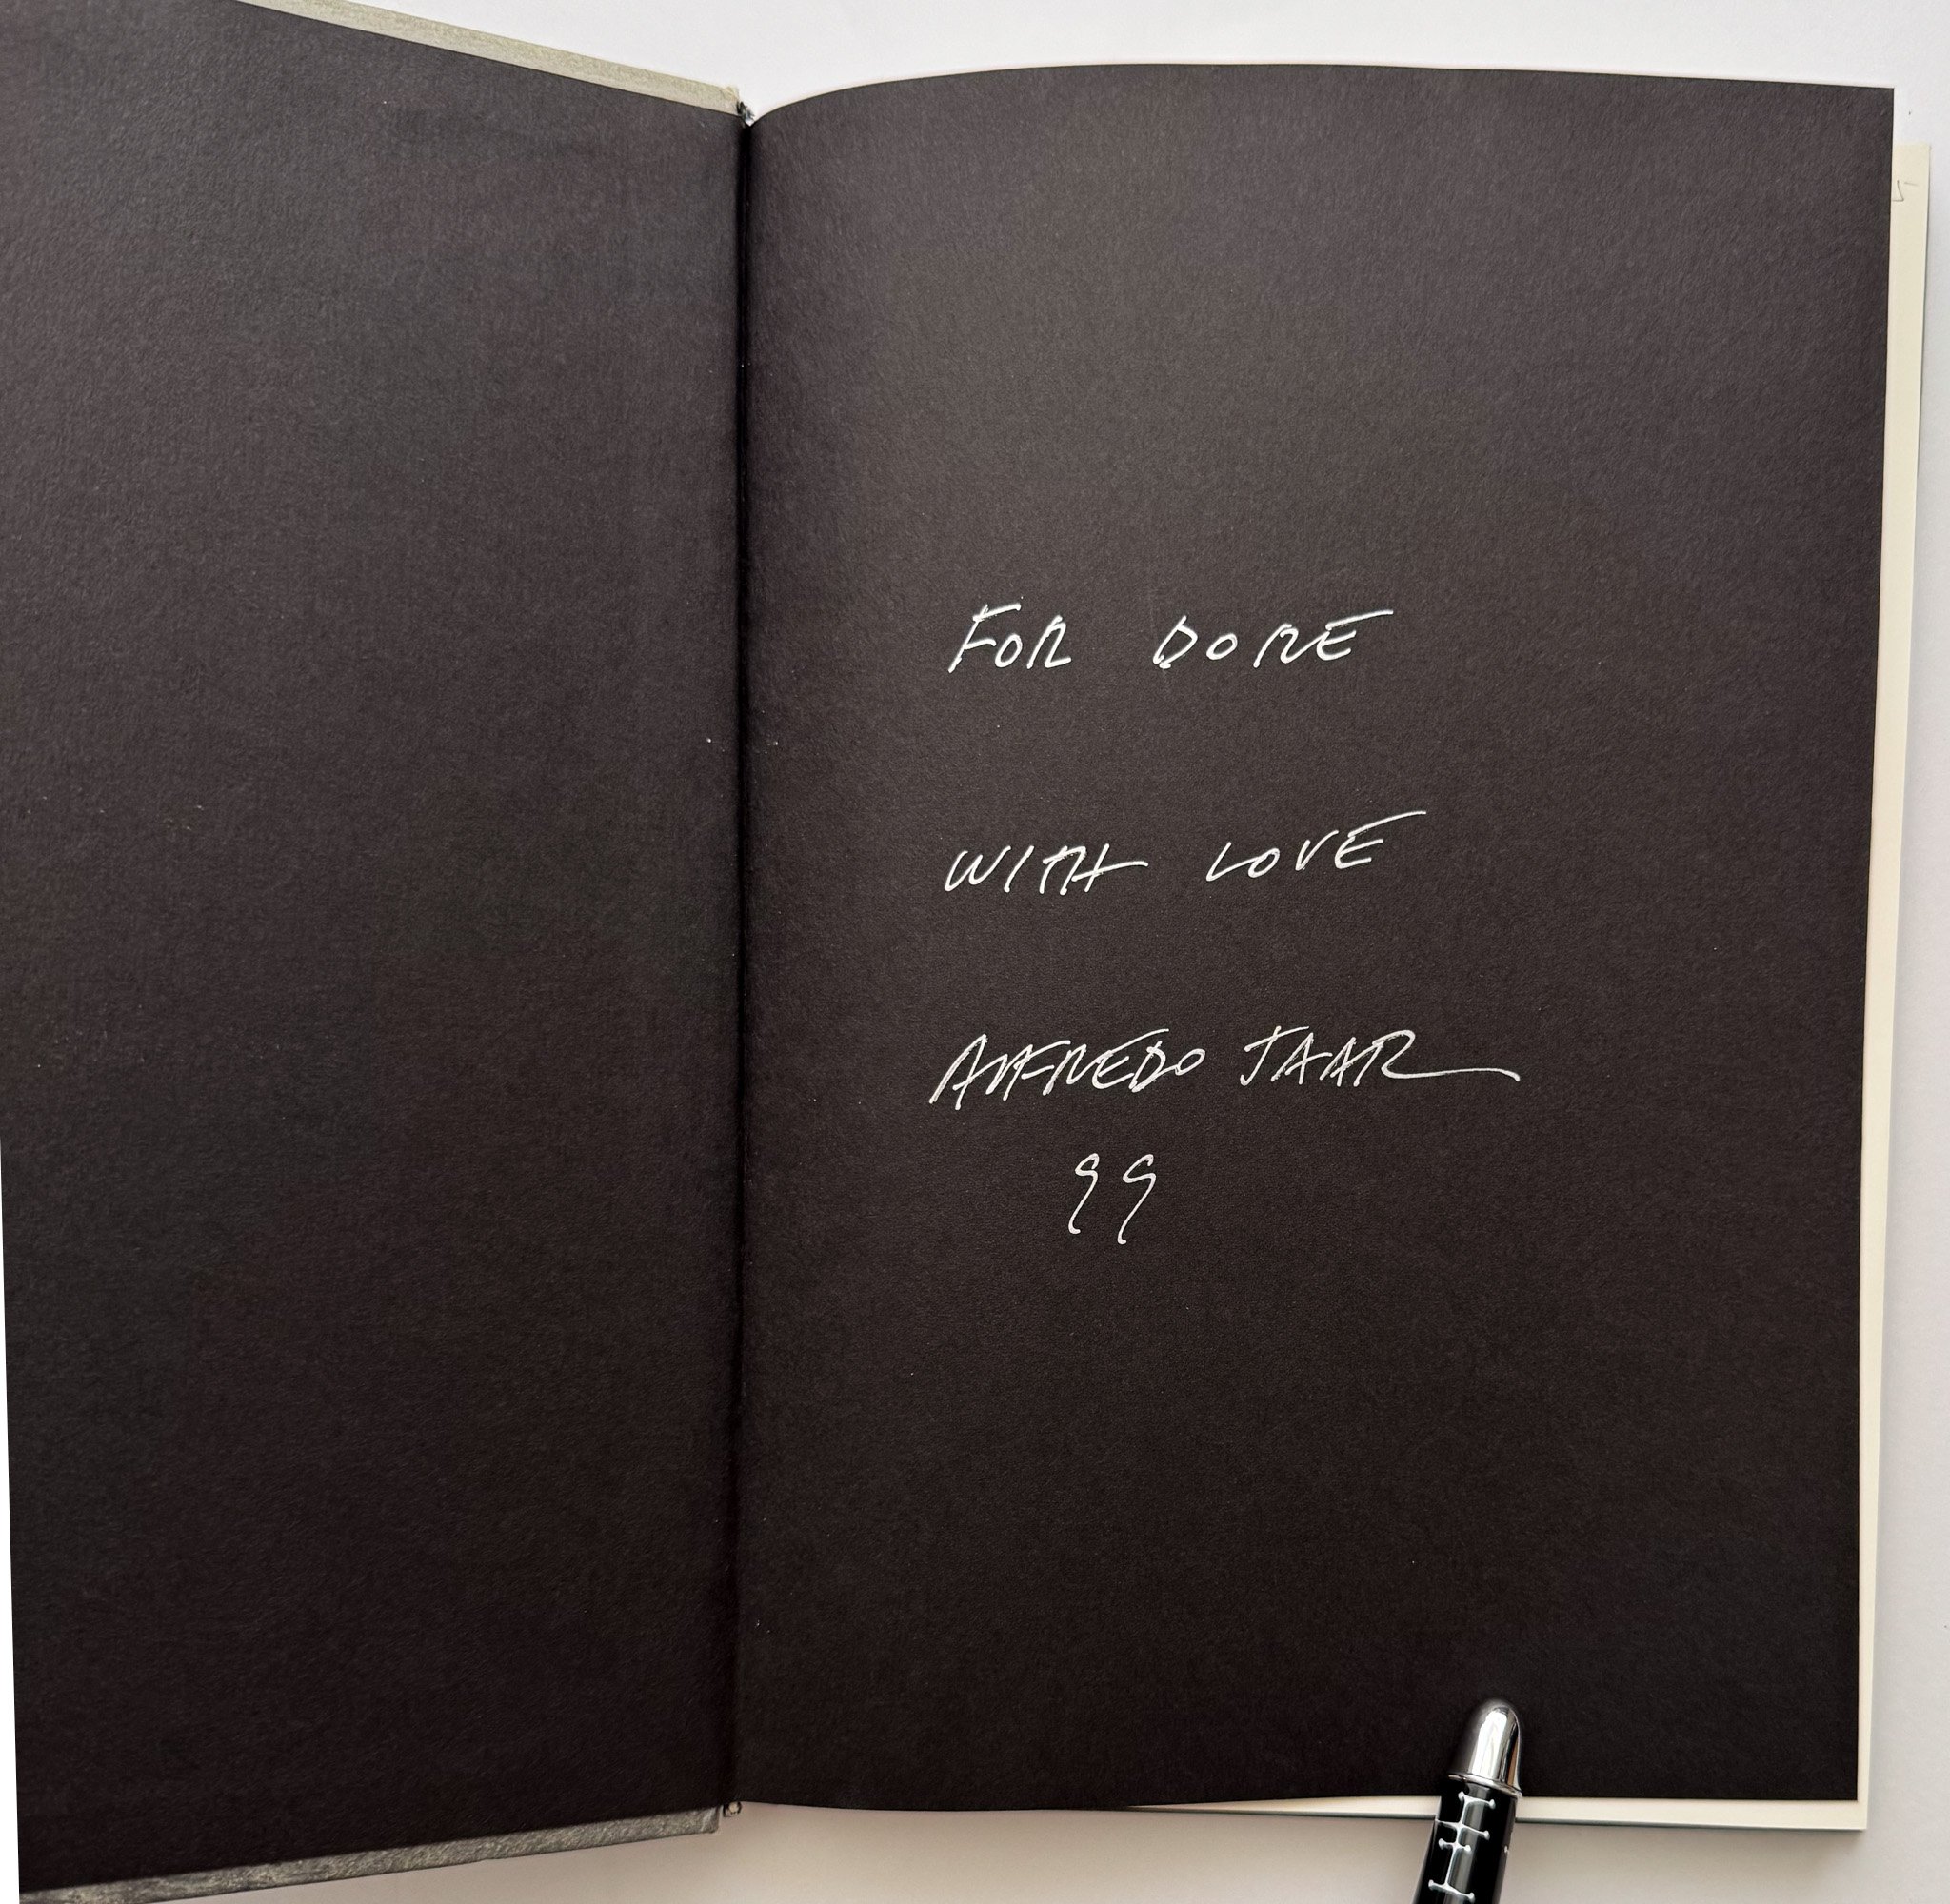 FOR DORE
WITH LOVE
ALFREDO JAAR
99